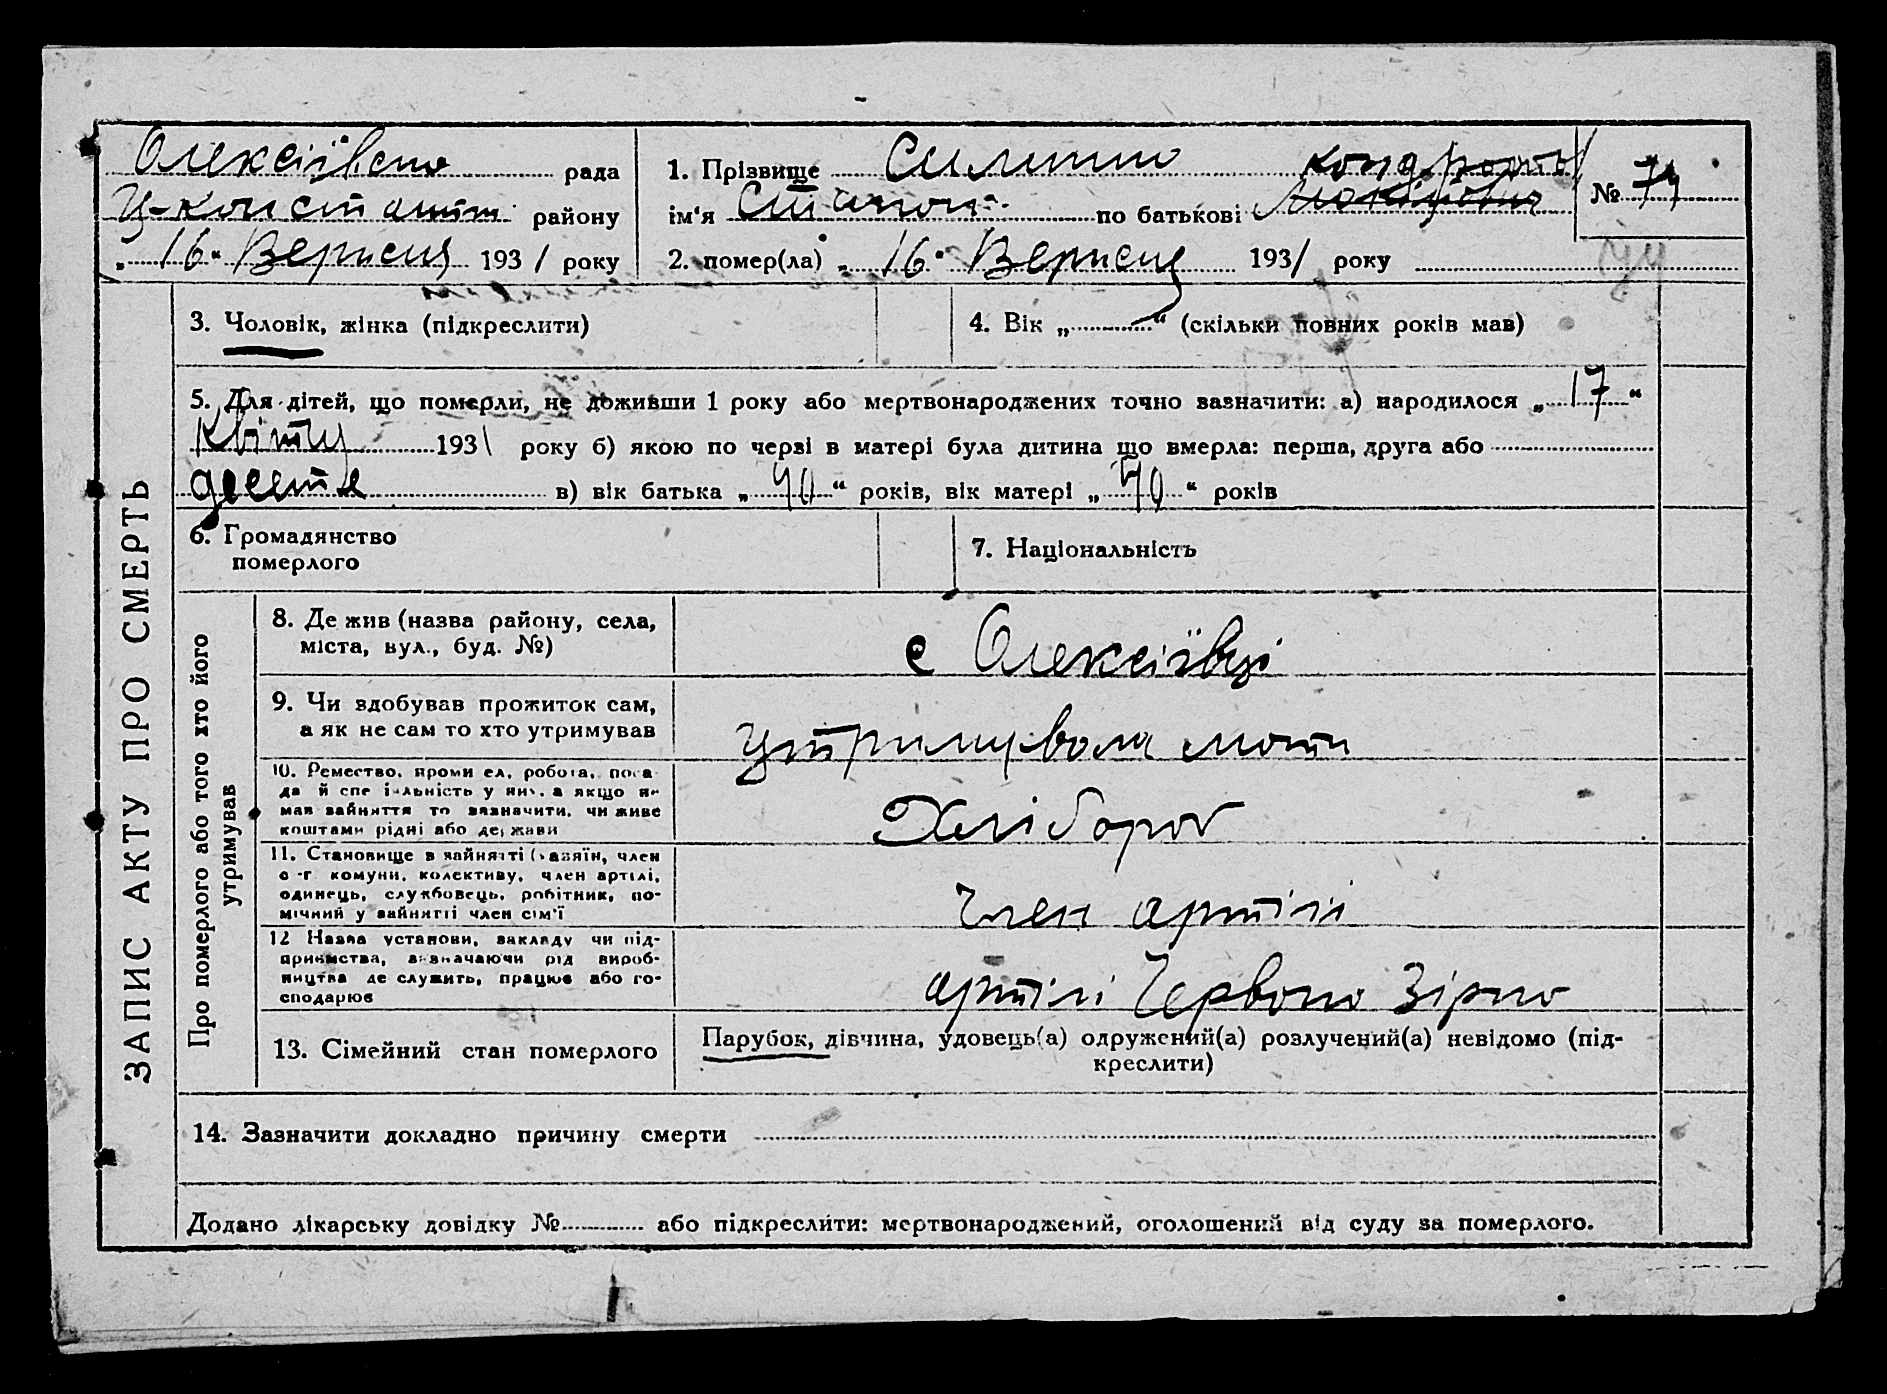 Олексіївська рада
Ц-Констант району
„16“ Вересня 1931 року
1. Прізвище
ім'я Степан по батькові Кондратов
№ 74
2. помер(ла) „16“ Вересня 1931 року
3. Чоловік, жінка (підкреслити)
4. Вік „ “ (скільки повних років мав)
5. Для дітей, що померли, не доживши 1 року або мертвонароджених точно зазначити: а) народилося „17“
Квітня 1931 року б) якою по черзі в матері була дитина що вмерла: перша, друга або
десяте в) вік батька „40“ років, вік матері „40“ років
6. Громадянство
померлого
7. Національність
ЗАПИС АКТУ ПРО СМЕРТЬ
Про померлого або того хто його
утримував
8. Де жив (назва району, села,
міста, вул., буд. №)
с Олексіївці
9. Чи здобував прожиток сам,
а як не сам то хто утримував
Утримувала мати
10. Ремество, промисел, робота, поса-
да й спеціяльність у них, а якщо не
мав зайняття то зазначити, чи живе
коштами рідні або держави
Хлібороб
11. Становище в зайнятті (хазяїн, член
с-г комуни, колективу, член артілі,
одинець, службовець, робітник, по-
мічний у зайнятті член сім'ї
Член артілі
12 Назва установи, закладу чи під-
приємства, зазначаючи рід вироб-
ництва де служить, працює або го-
сподарює
артілі Червона Зірка
13. Сімейний стан померлого
Парубок, дівчина, удовець(а) одружений(а) розлучений(а) невідомо (під-
креслити)
14. Зазначити докладно причину смерти
Додано лікарську довідку № або підкреслити: мертвонароджений, оголошений від суду за померлого.